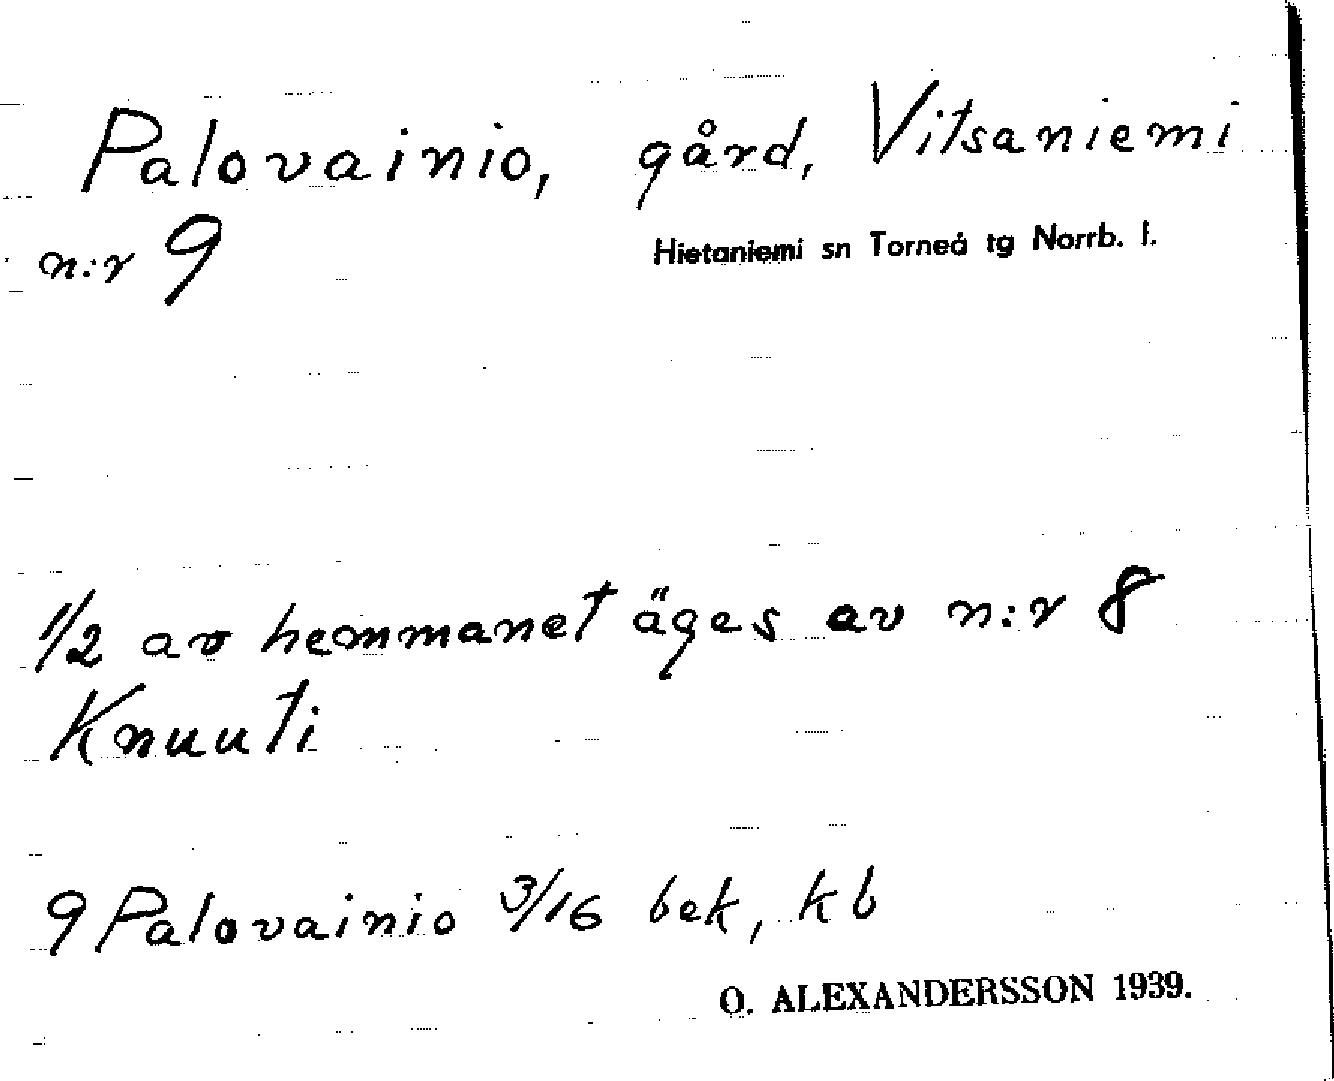 Palovainio, gård, Vitsaniemi
n:r 9
Hietaniemi sn Torneå tg Norrb. l.
1/2 av hemmanet äges av n:r 8
Knuuti
9 Palovainio 3/16 bek, kb
O. ALEXANDERSSON 1939.